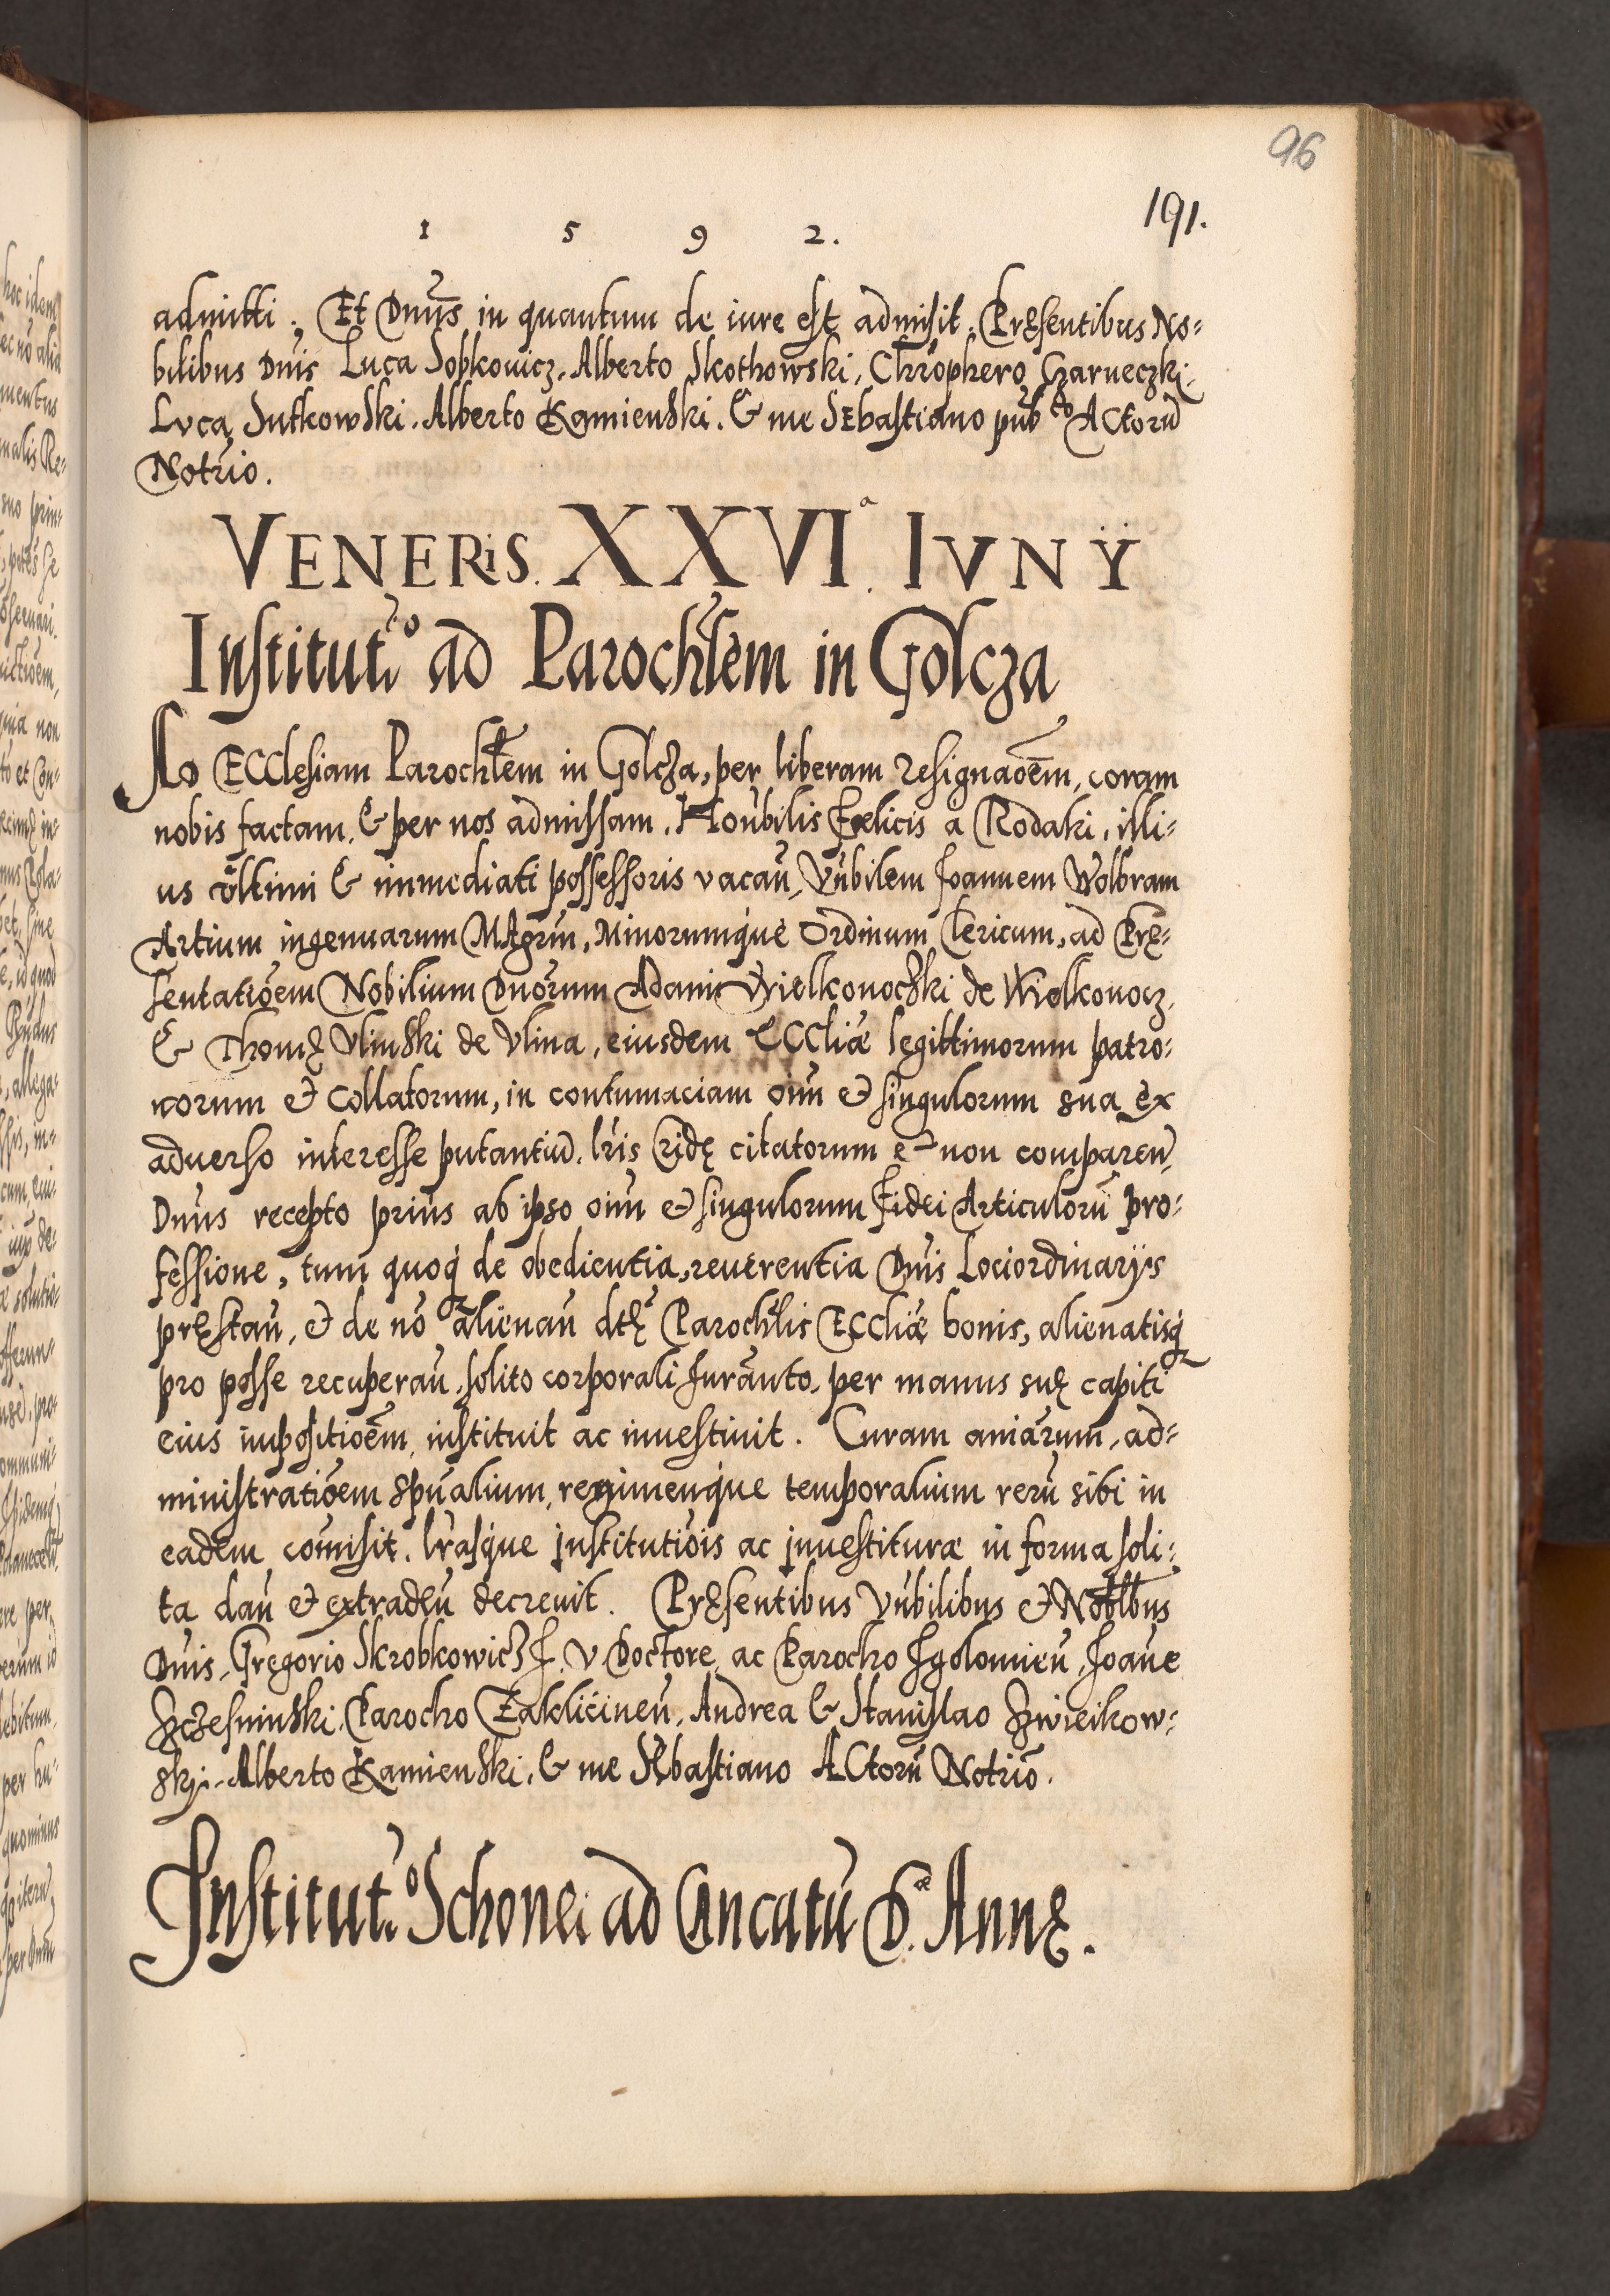 96
191.
1 5 9 2.
admitti. Et Dnūs in quantum de iure est admisit. Pręsentibus No=
bilibus Dnis Luca Sobkouicz, Alberto Skothowski, Chrōphero Czarneczki,
Luca Sutkowski. Alberto Kamienski. & me Sebastiano pubco Actorū
Notrio.
VENERIS. XXVIª. IVNY
Institutio ad Parochlem in Golcza
Ad Ecclesiam Parochlem in Golcza, per liberam resignaoēm, coram
nobis factam, & per nos admissam, Honbilis Fœlicis a Rodaki, illi=
us vltimi & immediati possessoris vacan, Vnbilem Joannem Wolbram
Artium ingenuarum Magrm, Minorumque Ordinum Clericum, ad Prę=
sentatioem Nobilium Dnorum Adami Wielkonoczki de Wielkonocz,
& Thomę Vlinski de Vlina, eiusdem Eccliæ legittimorum patro=
norum et Collatorum, in contumaciam oim et singulorum sua ex
aduerso interesse putantiū, lris ridę citatorum et non comparen,
Dnus recepto prius ab ipso oim et singulorum fidei Articulorū pro=
fessione, tum quoq de obedientia, reuerentia Dnis Lociordinarijs
pręstan, et de nō alienan dtę Parochlis Eccliæ bonis, alienatisq
pro posse recuperan, solito corporali Juranto, per manus suę capiti
eius impositioēm, instituit ac inuestiuit. Curam aniarum, ad=
ministratioem spualium, regimenque temporalium rerū sibi in
eadem comisit. lrasque institutiois ac inuestituræ in forma soli=
ta dan et extraden decreuit. Pręsentibus Vnbilibus et Noblbus
Dnis, Gregorio Skrobkowicz J. V Doctore, ac Parocho Igolomien, Joane
Szczesninski, Parocho Zakliċinen, Andrea & Stanislao Zwieikow=
skj. Alberto Kamienski, & me Sebastiano Actorū Notrio.
Institutio Schonei ad Cancatū D. Annę.